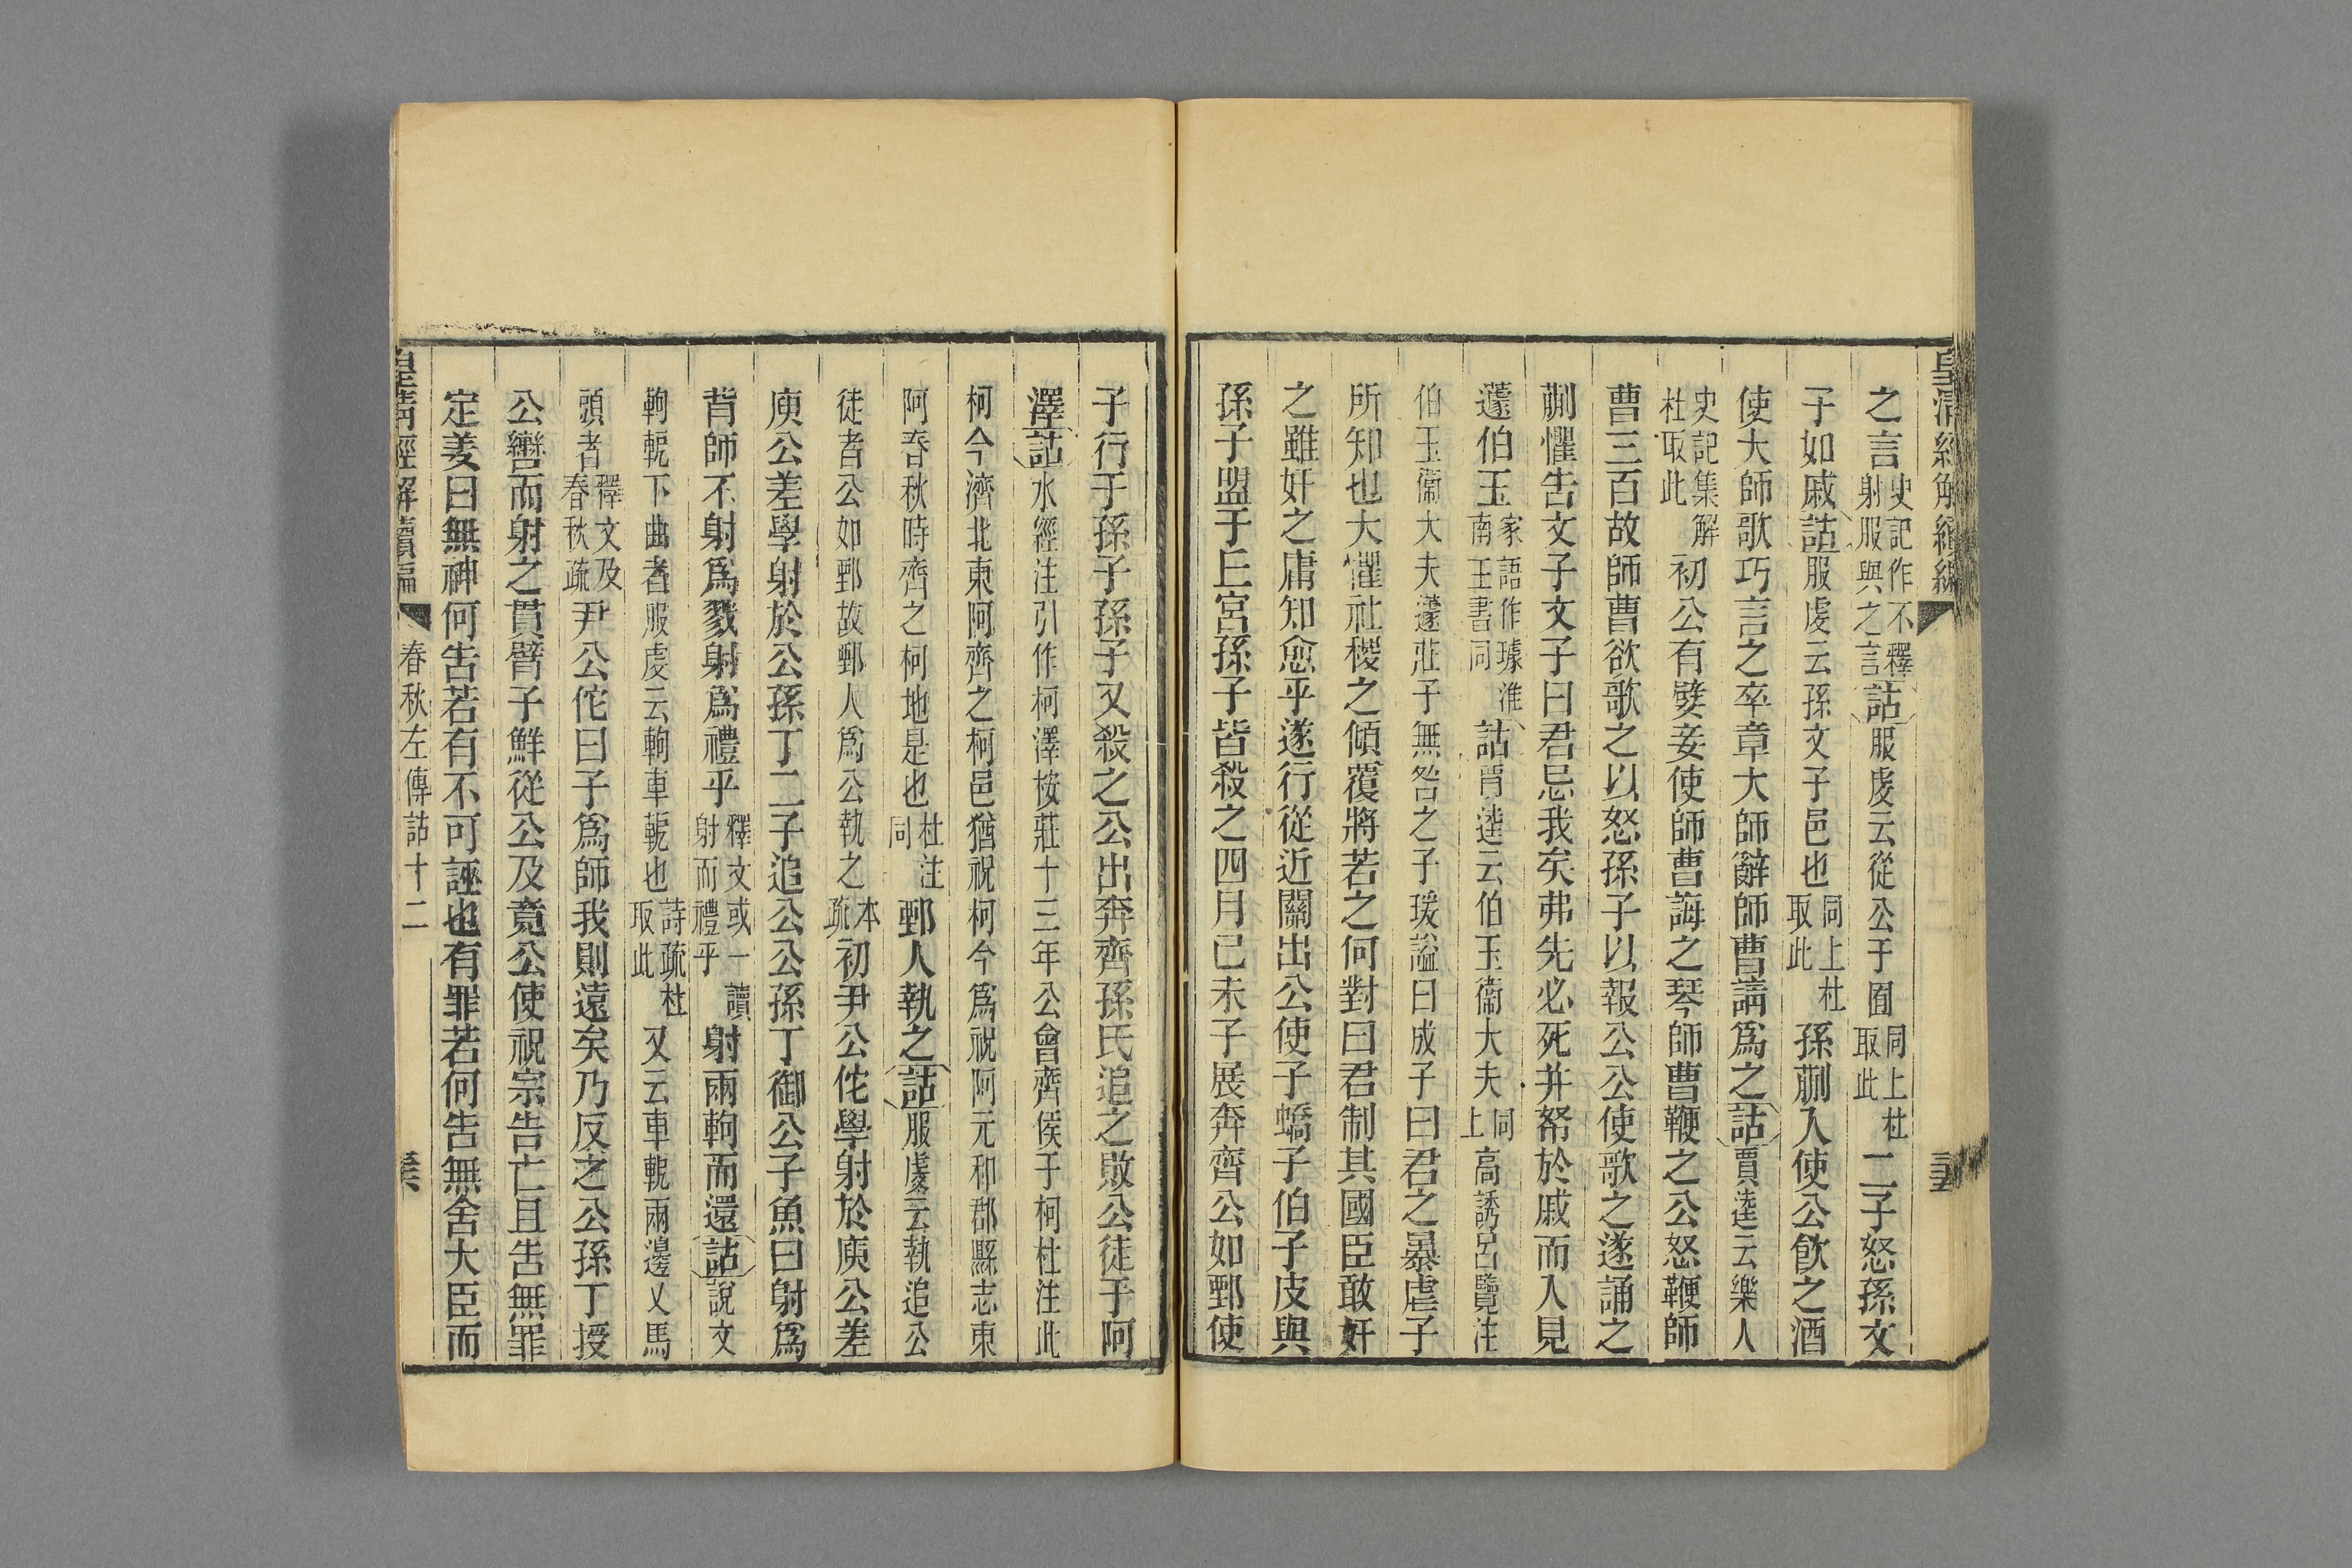 皇清經解續編
之言史記作不釋射服與之言詁服虔云從公于囿同上杜取此二子怒孫文
子如戚詁服虔云孫文子邑也同上杜取此孫蒯入使公飮之酒
使大師歌巧言之卒章大師辭師曹請爲之詁賈逵云樂人
史記集解杜取此初公有嬖妾使師曹誨之琴師曹鞭之公怒鞭師
曹三百故師曹欲歌之以怒孫子以報公公使歌之遂誦之
蒯懼告文子文子曰君忌我矣弗先必死幷帑於戚而入見
蘧伯玉家語作璩淮南王書同詁賈逵云伯玉衞大夫同上高誘呂覽注
伯玉衞大夫蘧莊子無咎之子瑗諡曰成子曰君之暴虐子
所知也大懼社稷之傾覆將若之何對曰君制其國臣敢奸
之雖奸之庸知愈乎遂行從近關出公使子蟜子伯子皮與
孫子盟于丘宮孫子皆殺之四月己未子展奔齊公如鄄使
子行于孫子孫子又殺之公出奔齊孫氏追之敗公徒于阿
澤詁水經注引作柯澤桉莊十三年公會齊侯于柯杜注此
柯今濟北東阿齊之柯邑猶祝柯今爲祝阿元和郡縣志東
阿春秋時齊之柯地是也杜注同鄄人執之詁服虔云執追公
徒者公如鄄故鄄人爲公執之本疏初尹公佗學射於庾公差
庾公差學射於公孫丁二子追公公孫丁御公子魚曰射爲
背師不射爲戮射爲禮乎釋文或一讀射而禮乎射兩軥而還詁說文
軥軶下曲者服虔云軥車軶也詩疏杜取此又云車軶兩邊乂馬
頭者釋文及春秋疏尹公佗曰子爲師我則遠矣乃反之公孫丁授
公轡而射之貫臂子鮮從公及竟公使祝宗告亡且告無罪
定姜曰無神何告若有不可誣也有罪若何告無舍大臣而
皇淸經解續編
春秋左傳詁十二